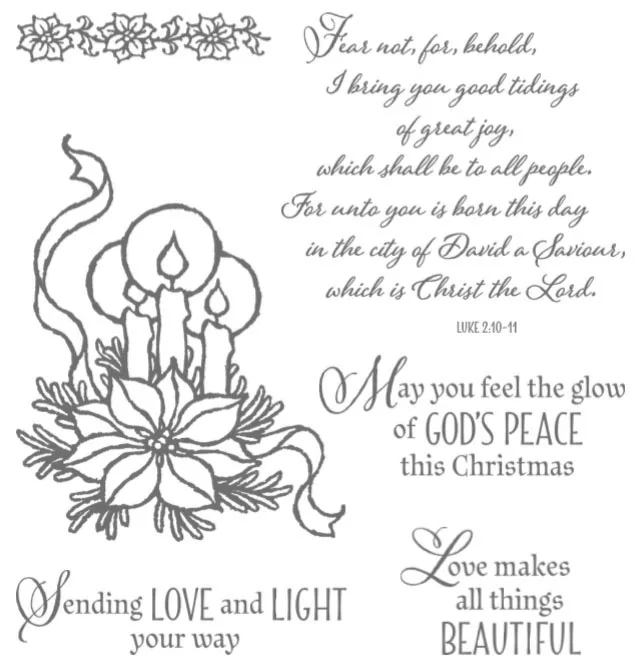 Fear not, for, behold,
I bring you good tidings
of great joy,
which shall be to all people.
For unto you is born this day
in the city of David a Saviour,
which is Christ the Lord.
LUKE 2:10-11
May you feel the glow
of GOD'S PEACE
this Christmas
Love makes
all things
BEAUTIFUL
Sending LOVE and LIGHT
your way